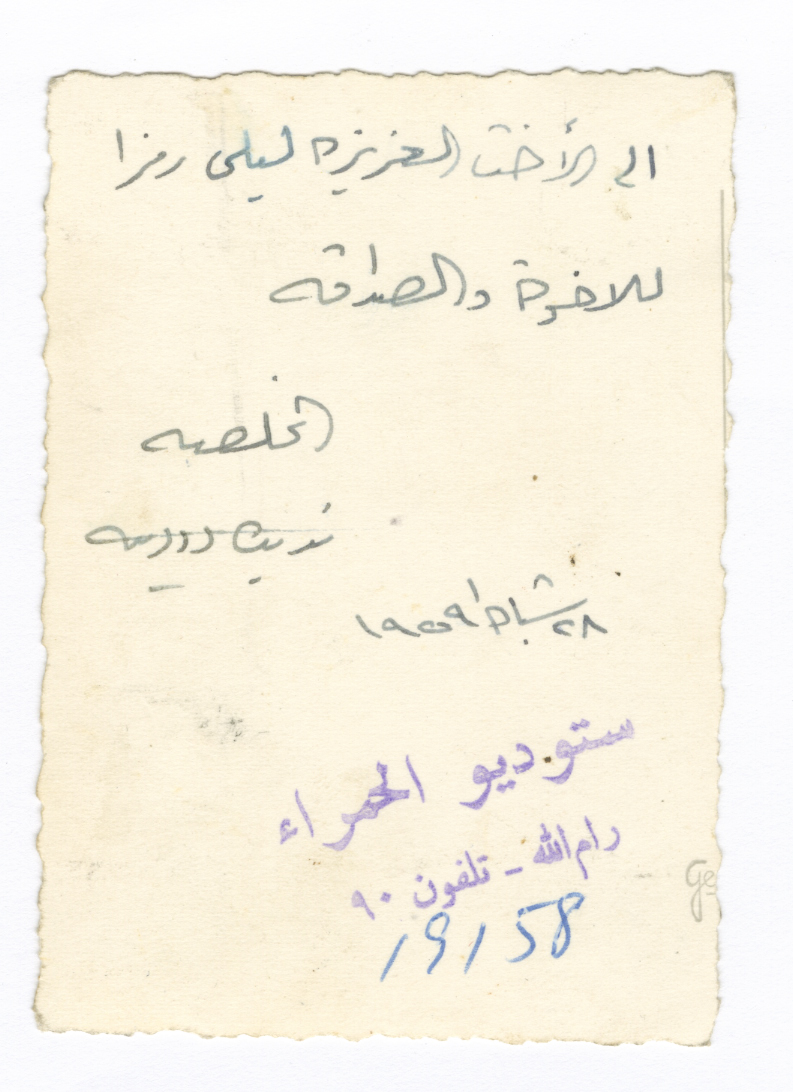 الى الأخت العزيزه ليلى رمزا
للاخوة والصداقه
المخلصه
٢٨ شباط ١٩٥٩
ستوديو الحمراء
رام الله - تلفون ٩٠
19158
Ge